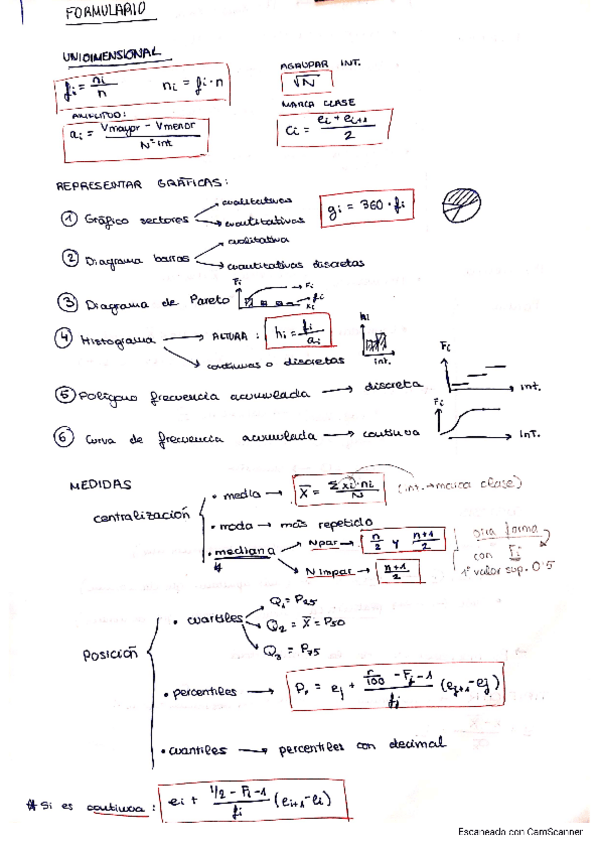 FORMULARIO
UNIDIMENSIONAL
fi = ni/n    ni = fi·n
AGRUPAR INT.
√N
AMPLITUD:
ai = (Vmayor - Vmenor)/Nº int
MARCA CLASE
Ci = (ei + ei+1)/2
REPRESENTAR GRÁFICAS:
① Gráfico sectores → cualitativas
→ cuantitativas
gi = 360·fi
② Diagrama barras → cualitativa
→ cuantitativas discretas
③ Diagrama de Pareto Fi → Fi
→ fi
xi
④ Histograma → ALTURA: hi = fi/ai
hi
int.
→ continuas o discretas
⑤ Polígono frecuencia acumulada → discreta
Fi
int.
⑥ Curva de frecuencia acumulada → continua
Fi
INT.
MEDIDAS
centralización
• media → x̄ = Σxi·ni/N (int.→marca clase)
• moda → más repetido
• mediana → N par → n/2 y (n+1)/2
# → N impar → (n+1)/2
otra forma
con Fi
1º valor sup. 0'5
Posición
• cuartiles → Q1 = P25
→ Q2 = x̄ = P50
→ Q3 = P75
• percentiles → Pr = ej + (r/100 - Fj-1)/fj (ej+1 - ej)
• cuantiles → percentiles con decimal
# Si es continua: ei + (1/2 - Fi-1)/fi (ei+1 - ei)
Escaneado con CamScanner